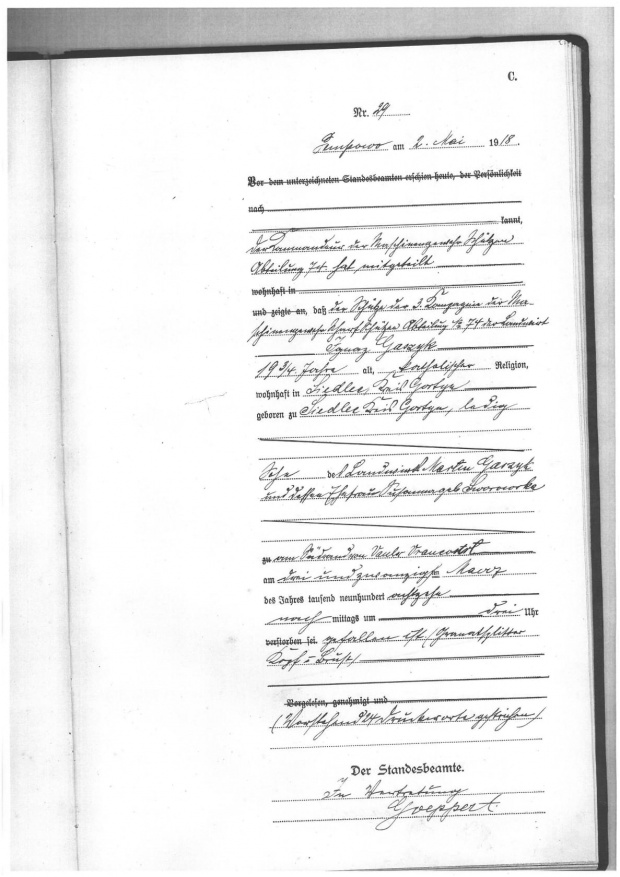 C.
Nr. 29
am 2. Mai 1918.
Vor dem unterzeichneten Standesbeamten erschien heute, der Persönlichkeit
nach
kannt,
der Kommandeur der Maschinengewehr Schützen
Abteilung 74. hat mitgeteilt
wohnhaft in
und zeigte an, daß der Schütze der 3. Kompagnie der Ma-
schinengewehr Scharfschützen Abteilung No 74 der Landwirt
Ignaz Gaszyk
19 3/4 Jahre alt, katholischer Religion,
wohnhaft in Siedlec, Kreis Gostyn
geboren zu Siedlec Kreis Gostyn, ledig
Sohn des Landwirt Martin Gaszyk
und dessen Ehefrau Susanna geb
zu am Südrand von Vaulx Vraucourt
am drei und zwanzigsten Maerz
des Jahres tausend neunhundert achtzehn
nach mittags um drei Uhr
verstorben sei. gefallen ist. (Granatsplitter
Kopf u Brust)
Vorgelesen, genehmigt und
(Vorstehend 24 Druckworte gestrichen)
Der Standesbeamte.
In Vertretung
Goeppert.